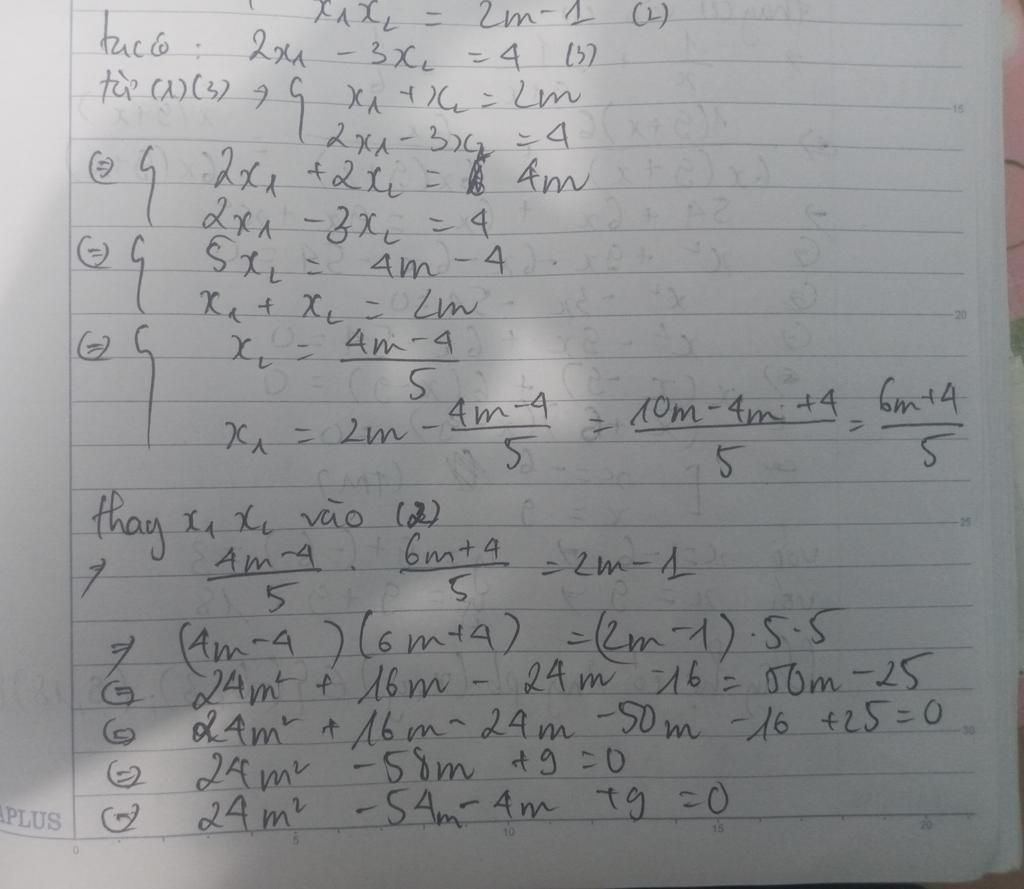 x₁x₂ = 2m-1 (2)
ta có : 2x₁ - 3x₂ = 4 (3)
từ (1)(3) => { x₁ + x₂ = 2m
2x₁ - 3x₂ = 4
<=> { 2x₁ + 2x₂ = 4m
2x₁ - 3x₂ = 4
<=> { 5x₂ = 4m - 4
x₁ + x₂ = 2m
<=> { x₂ = (4m-4)/5
x₁ = 2m - (4m-4)/5 = (10m-4m+4)/5 = (6m+4)/5
thay x₁ x₂ vào (2)
=> (4m-4)/5 . (6m+4)/5 = 2m-1
=> (4m-4)(6m+4) = (2m-1).5.5
<=> 24m² + 16m - 24m - 16 = 50m - 25
<=> 24m² + 16m - 24m - 50m - 16 + 25 = 0
<=> 24m² - 58m + 9 = 0
<=> 24m² - 54m - 4m + 9 = 0
APLUS
0 5 10 15 20
15
20
25
30